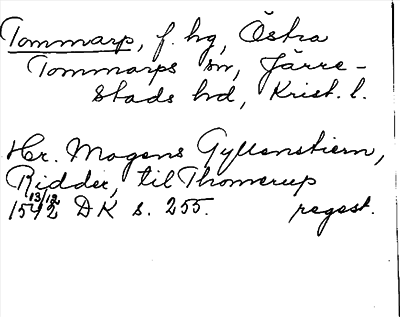 Tommarp, f. hg, Östra
Tommarps sn, Järre-
stads hd, Krist. l.
Hr. Mogens Gyllenstiern,
Ridder, til Thomerup
1542 13/12 DK s. 255. regest.